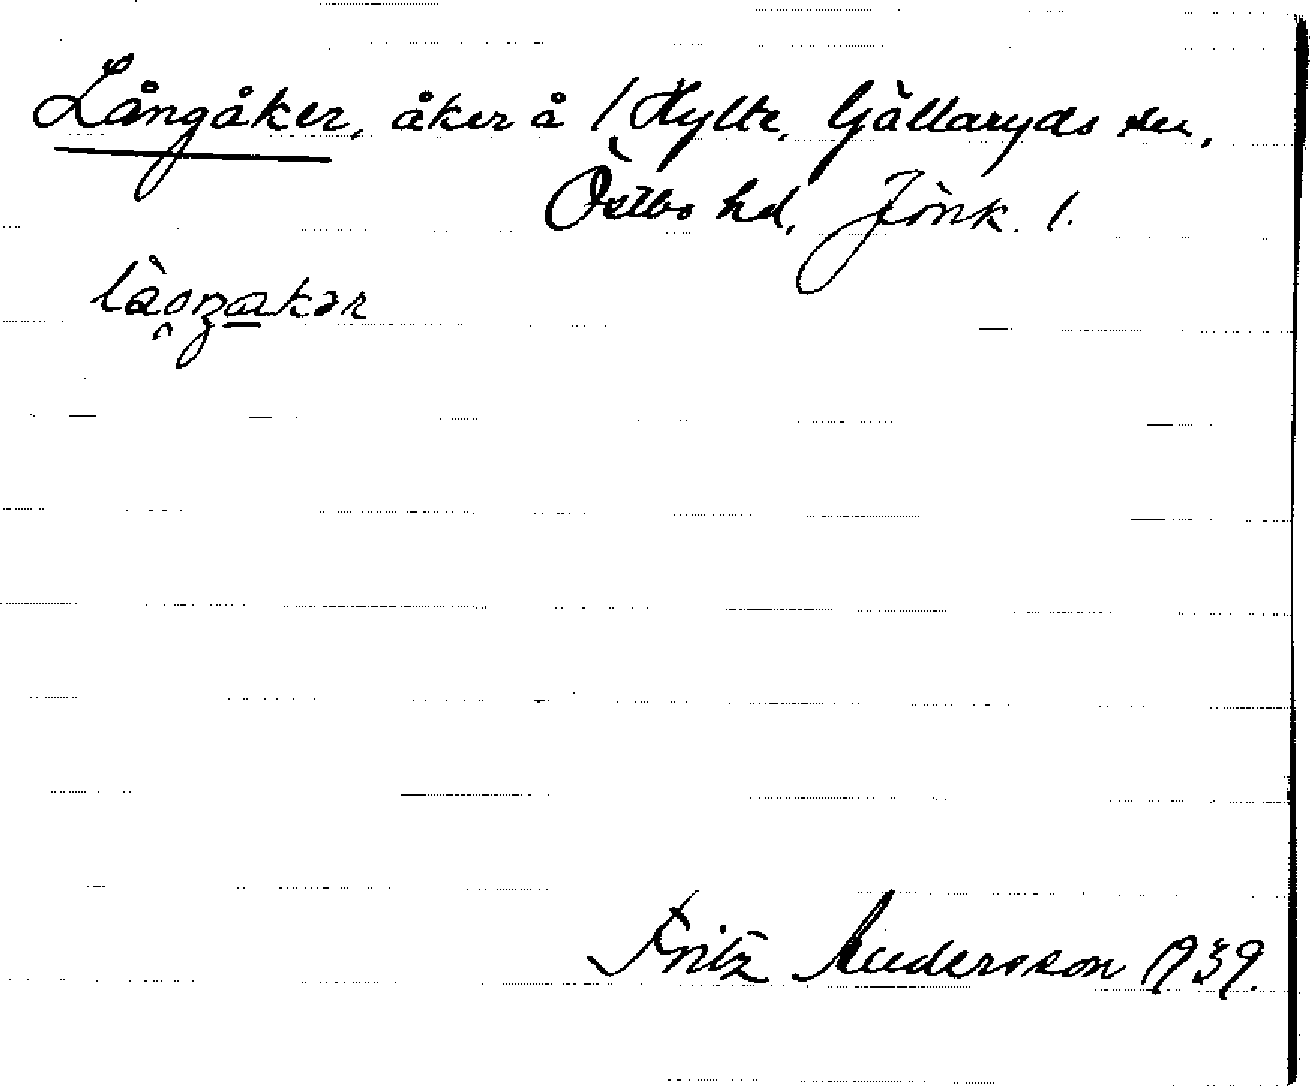 Långåker, åker å 1 Hylte, Gällaryds sn,
Östbo hd, Jönk. l.
Fritz Andersson 1939.